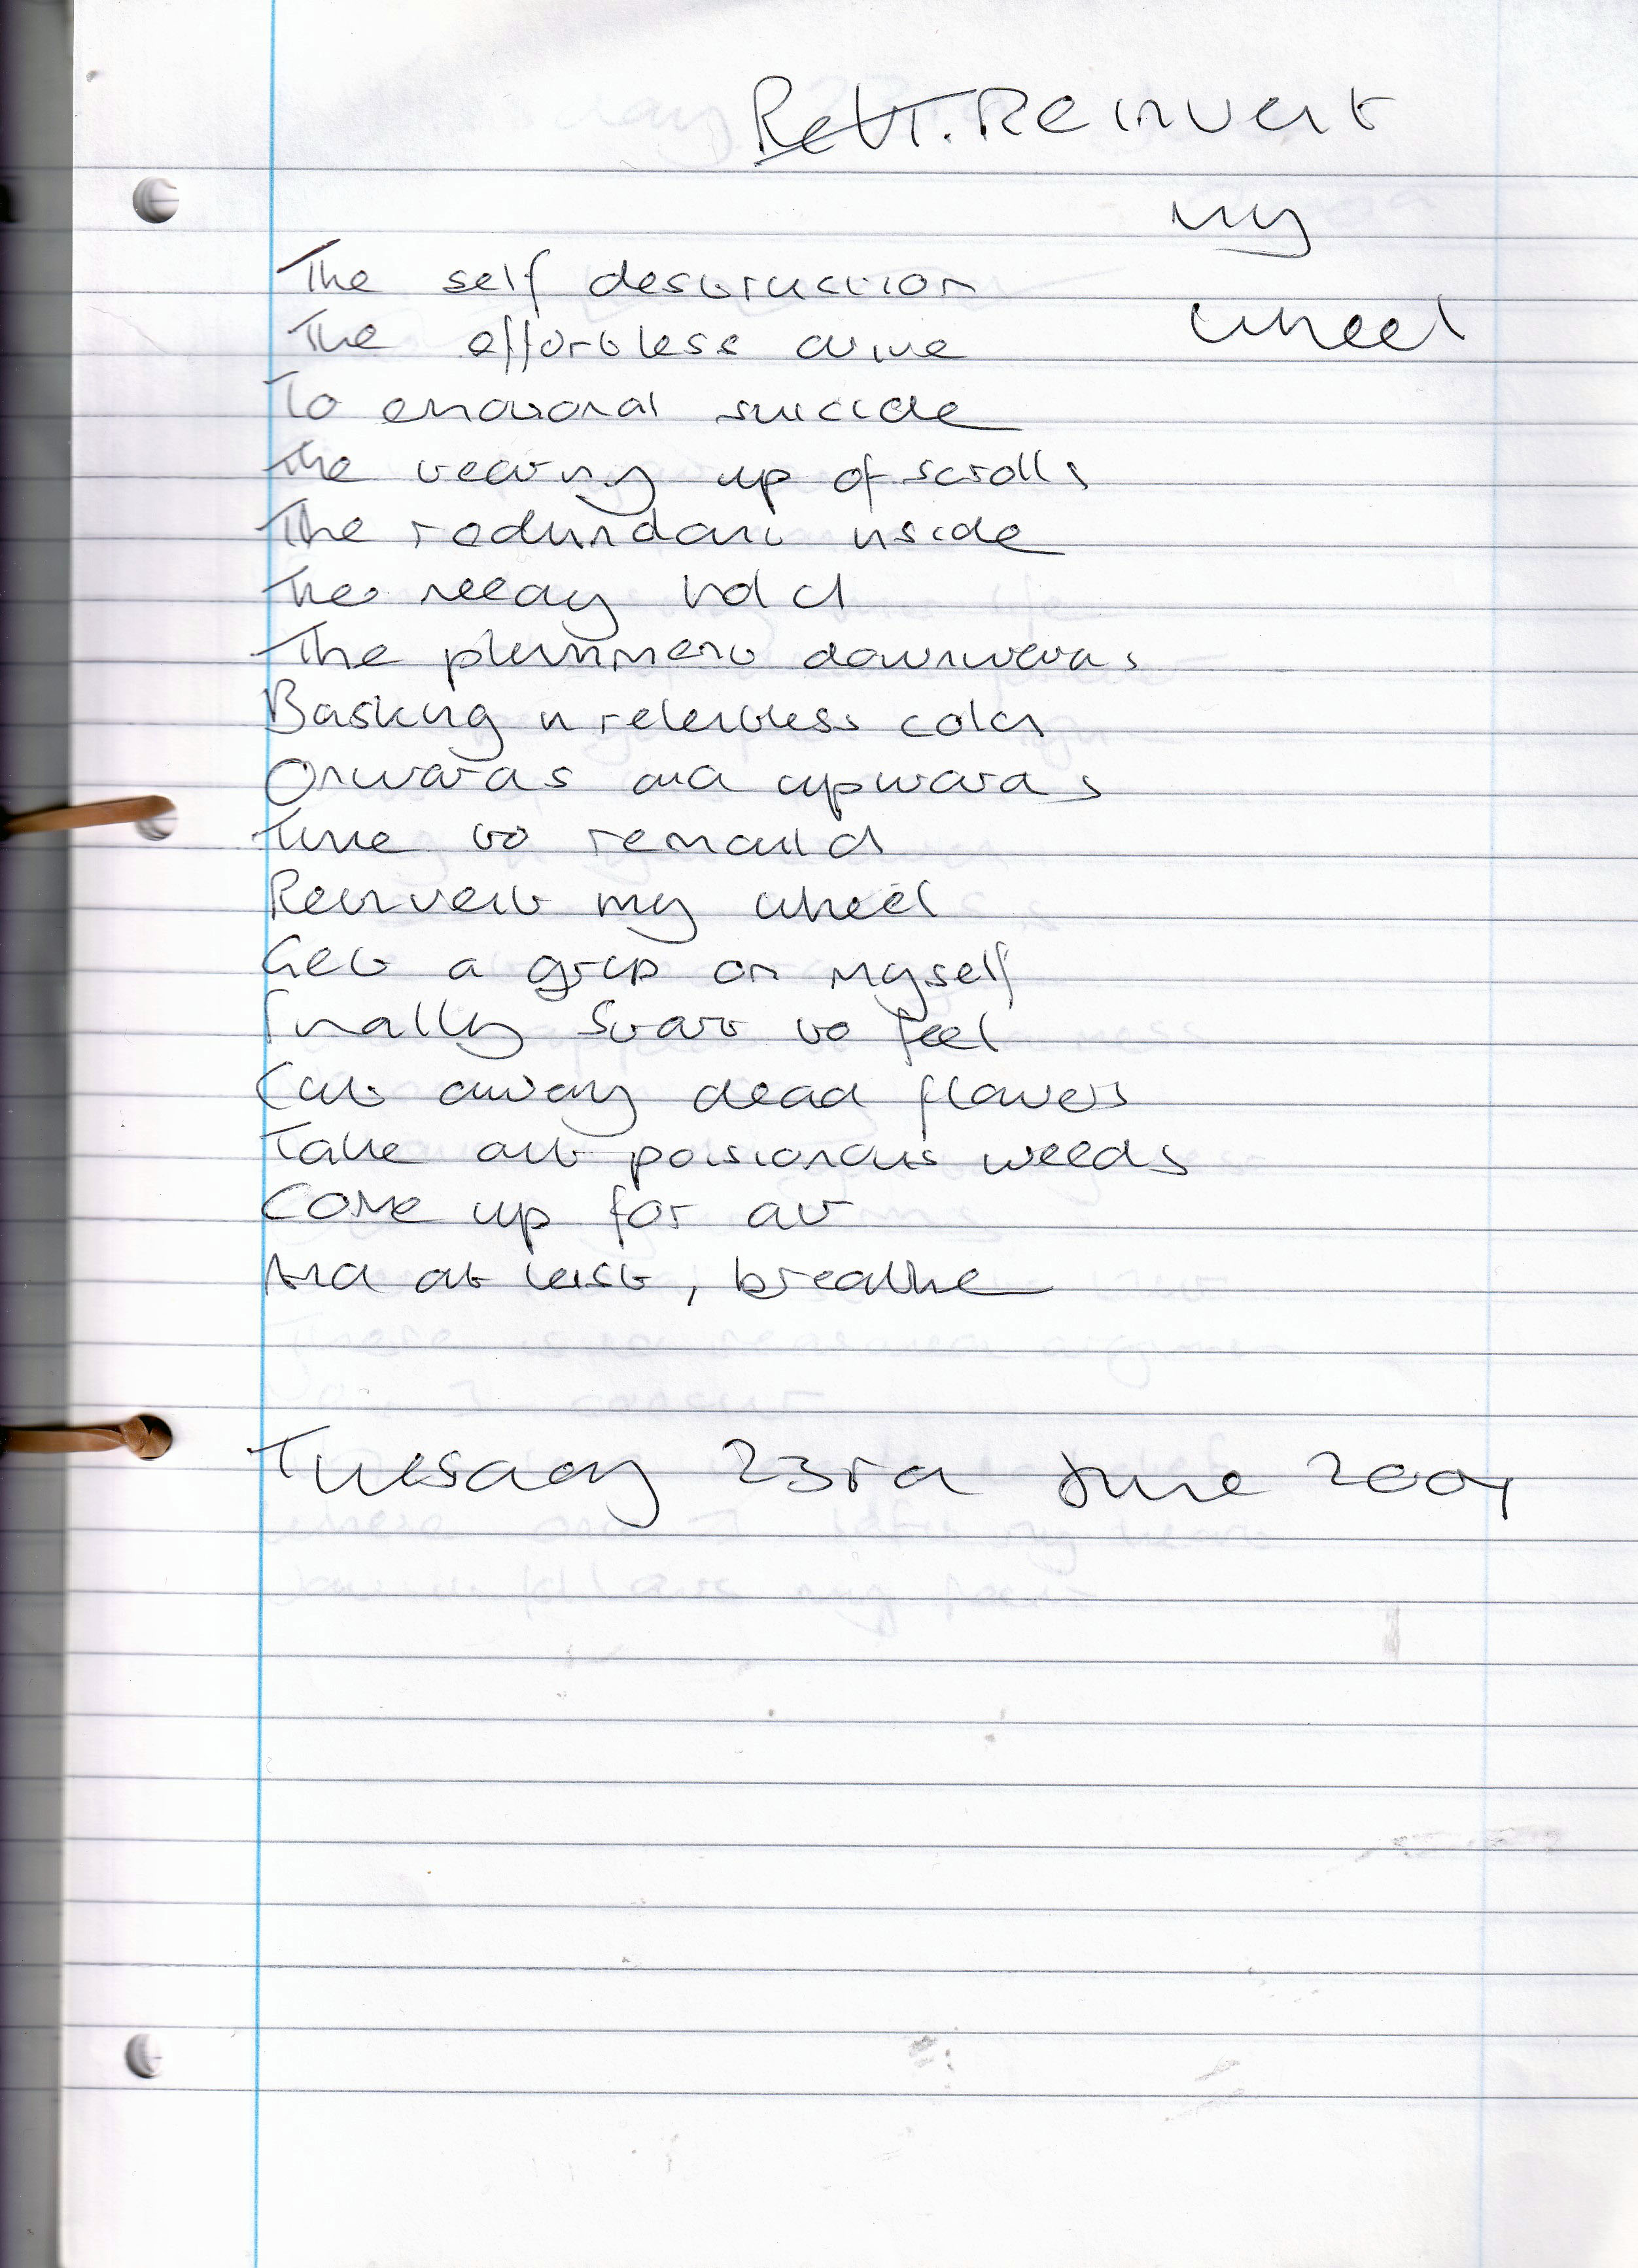 Reinvent
my
wheel
The self destruction
The effortless drive
To emotional suicide
The tearing up of scrolls
The redundant inside
The needy hold
The plumment downwards
Basking in relentless cold
Onwards and upwards
Time to remould
Reinvent my wheel
Get a grip on myself
Finally start to feel
Cut away dead flowers
Take out poisionous weeds
Come up for air
And at last, breathe
Tuesday 23rd June 2009